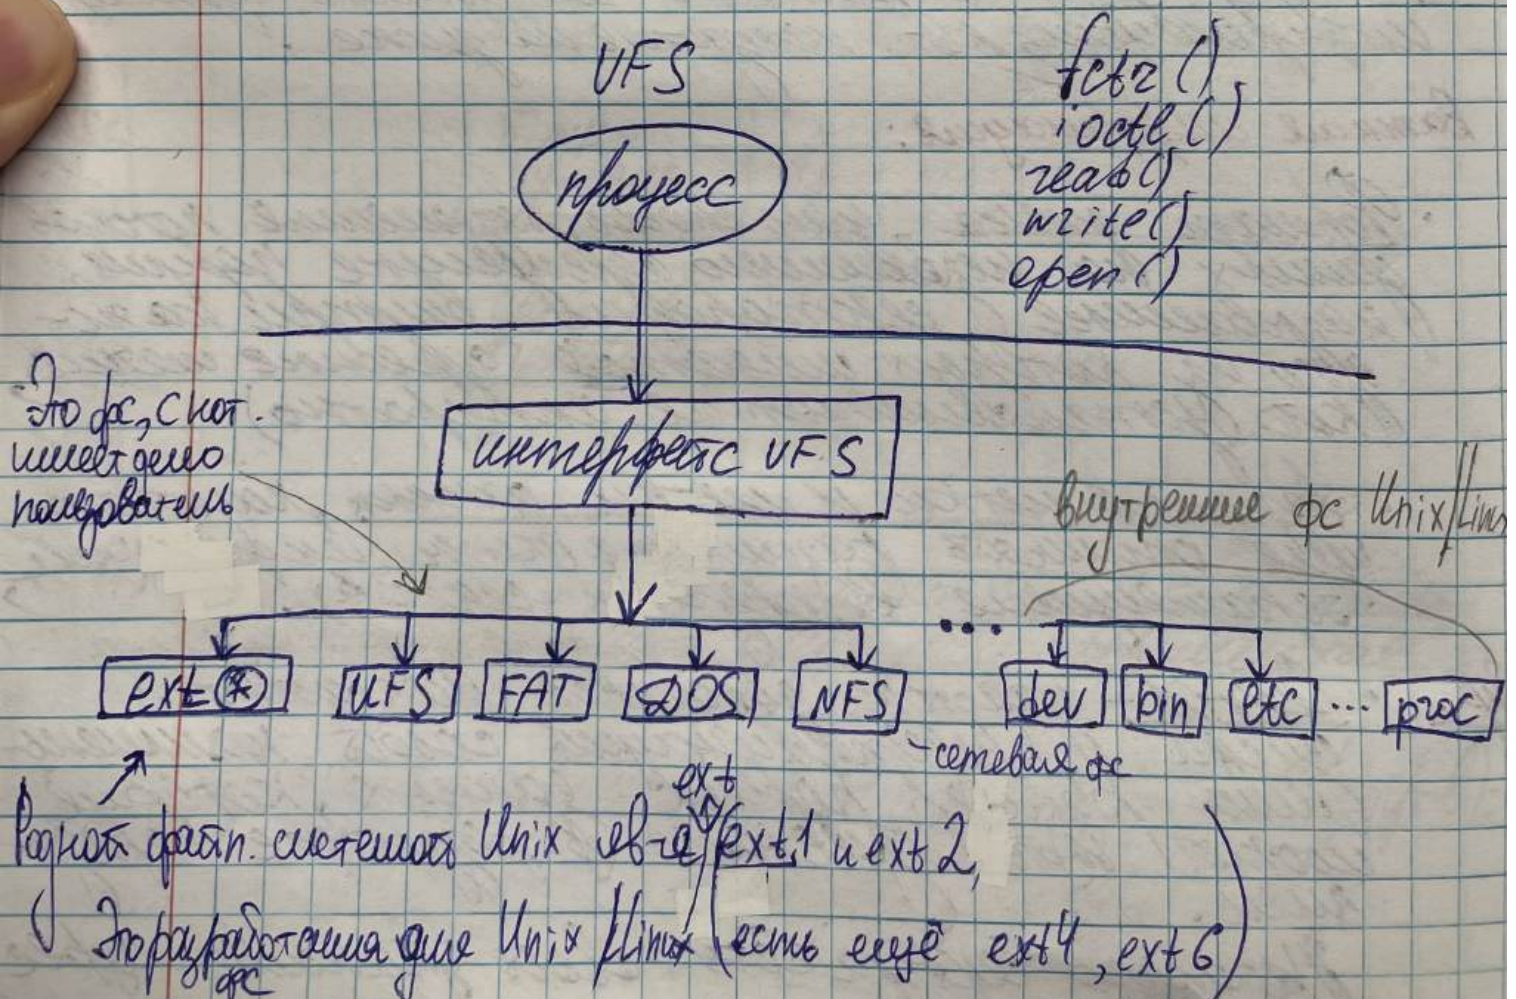 VFS
процесс
fctr()
ioctl()
read()
write()
open()
Это фс, с кот.
имеет дело
пользователь
интерфейс VFS
внутренние фс Unix/Linux
...
ext *
UFS
FAT
DOS
NFS
dev
bin
etc
...
proc
- сетевая фс
ext
Родной файл. системой Unix яв-ся (ext1 и ext2,
Это разработанная для Unix/Linux (есть ещё ext4, ext6)
фс